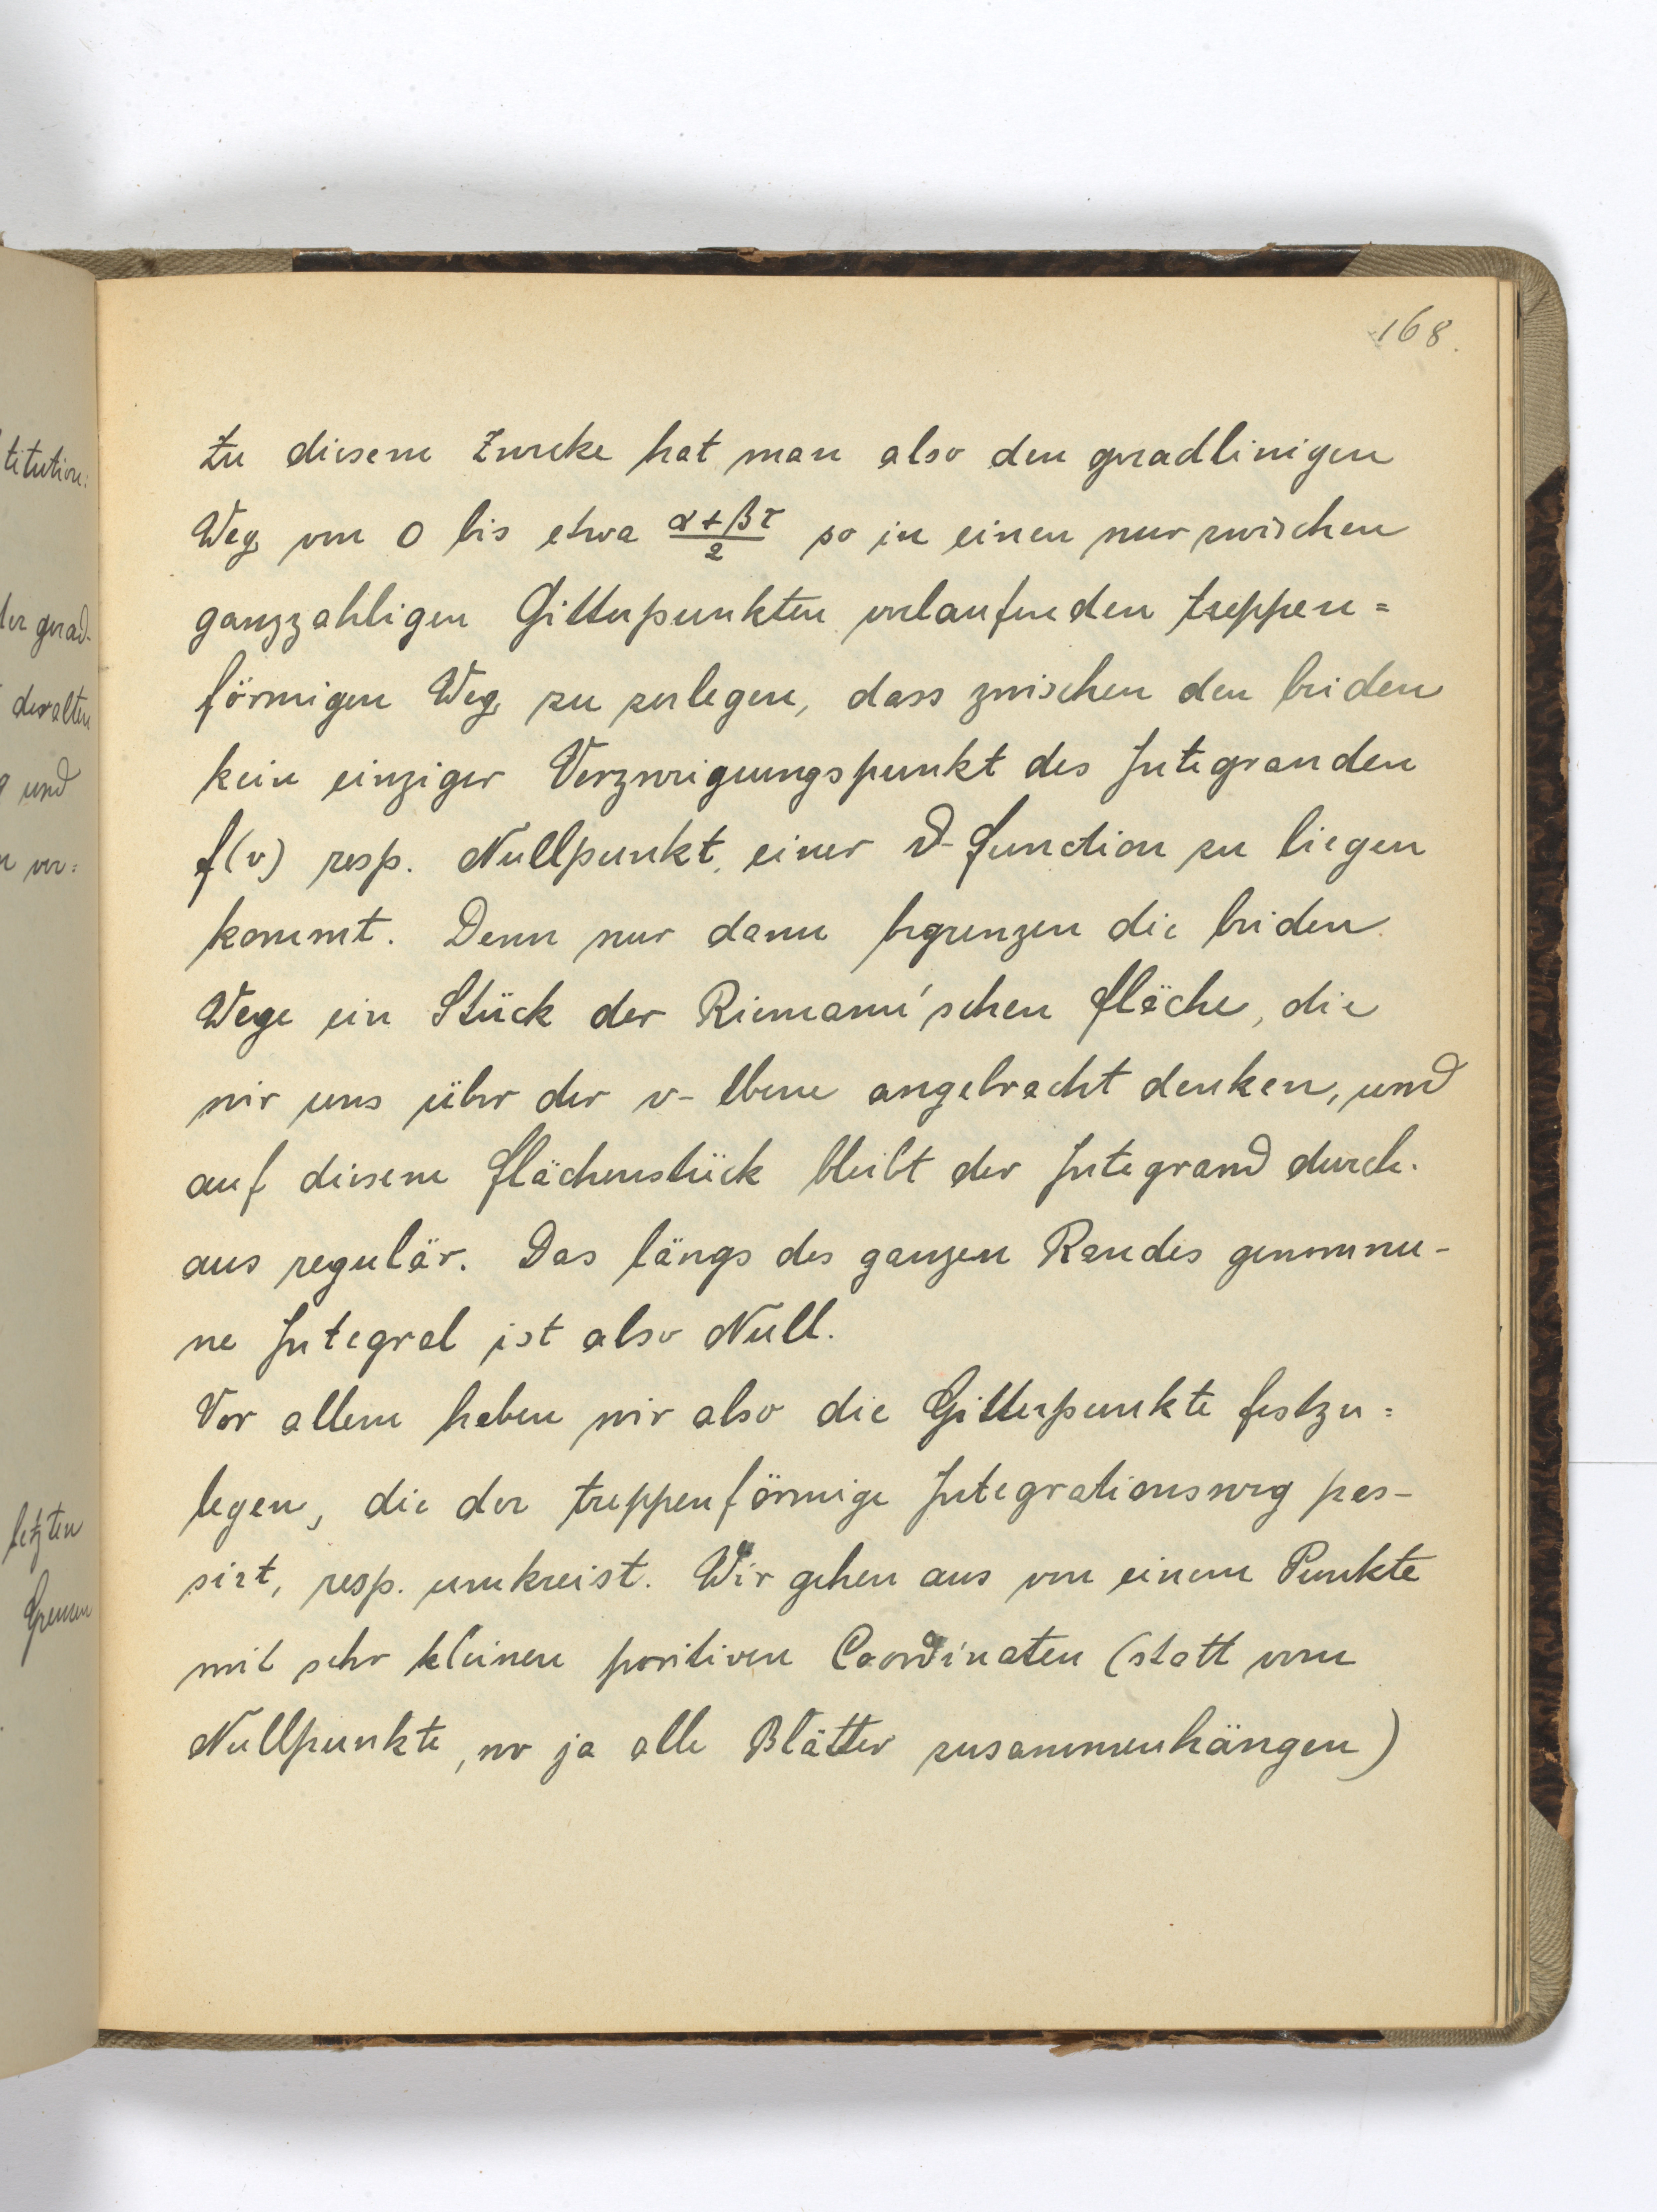 168.
Zu diesem Zwecke hat man also den geradlinigen
Weg von 0 bis etwa (α+βτ)/2 so in einen nur zwischen
ganzzahligen Gitterpunkten verlaufenden treppen=
förmigen Weg zu zerlegen, dass zwischen den beiden
kein einziger Verzweigungspunkt des Integranden
f(v) resp. Nullpunkt einer ϑ-Function zu liegen
kommt. Denn nur dann begrenzen die beiden
Wege ein Stück der Riemann'schen Fläche, die
wir uns über der v-Ebene angebracht denken, und
auf diesem Flächenstück bleibt der Integrand durch-
aus regulär. Das längs des ganzen Randes genomme-
ne Integral ist also Null.
Vor allem haben wir also die Gitterpunkte festzu=
legen, die der treppenförmige Integrationsweg pas-
sirt, resp. umkreist. Wir gehen aus von einem Punkte
mit sehr kleinen positiven Coordinaten (statt vom
Nullpunkte, wo ja alle Blätter zusammenhängen)
titution:
der grad-
deralten
und
ver=
letzten